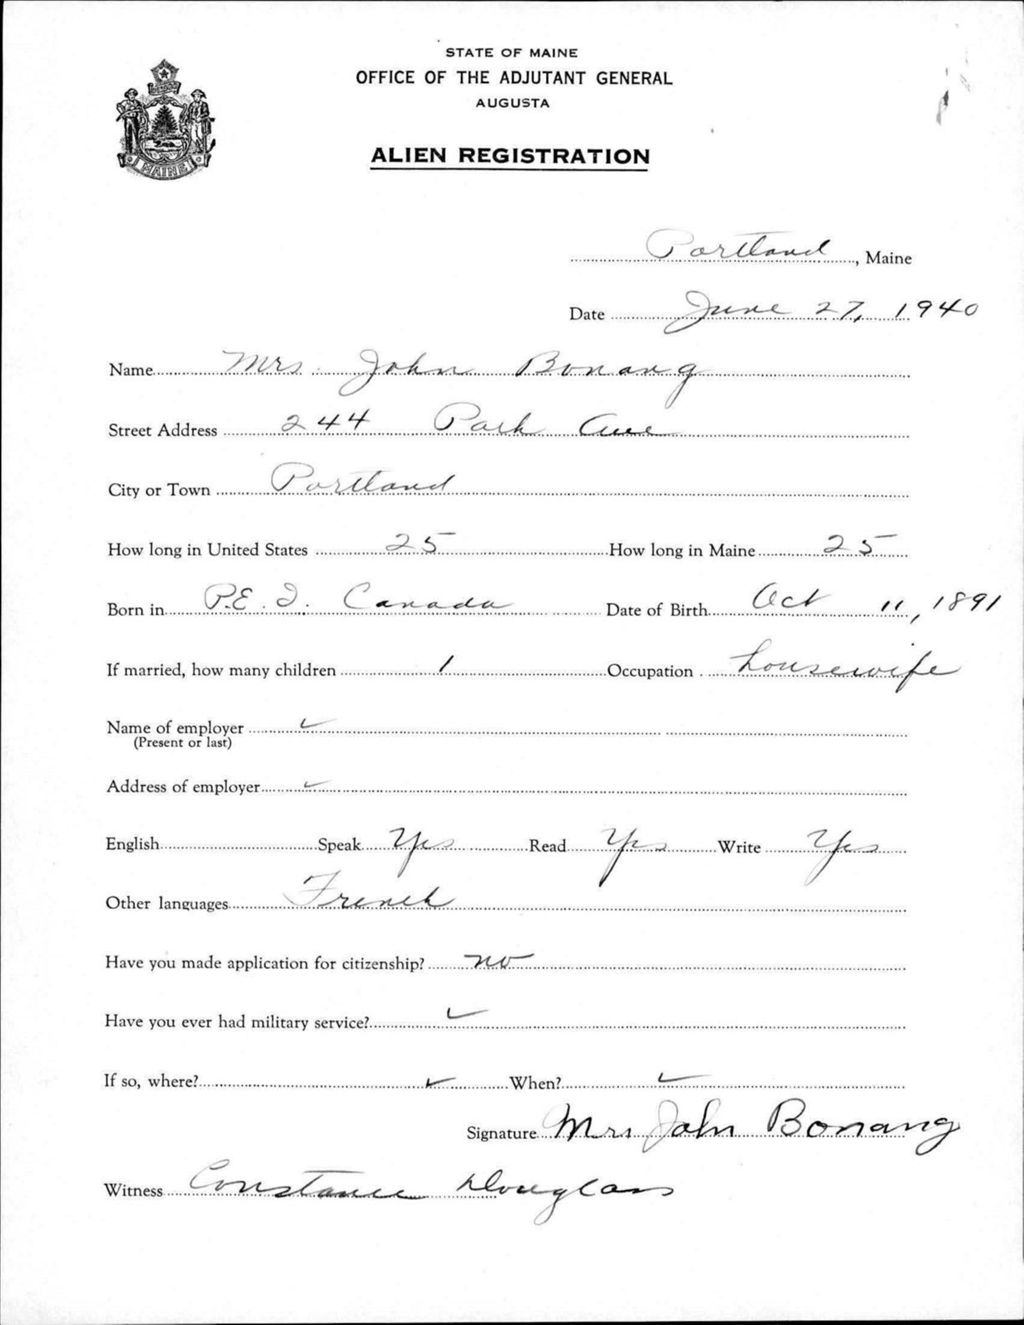 STATE OF MAINE
OFFICE OF THE ADJUTANT GENERAL
AUGUSTA
ALIEN REGISTRATION
MAINE
Portland, Maine
Date June 27, 1940
Name Mrs. John Bonang
Street Address 244 Park Ave
City or Town Portland
How long in United States 25 How long in Maine 25
Born in P.E.I. Canada Date of Birth Oct 11, 1891
If married, how many children 1 Occupation housewife
Name of employer ✓
(Present or last)
Address of employer ✓
English Speak Yes Read Yes Write Yes
Other languages French
Have you made application for citizenship? no
Have you ever had military service? ✓
If so, where? ✓ When? ✓
Signature Mrs John Bonang
Witness Constance Douglass